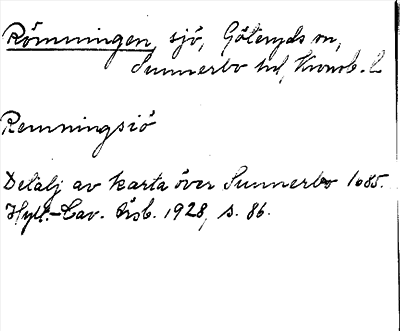 Römningen, sjö, Göteryds sn,
Sunnerbo hd, Kronob. l.
Remningsiö
Detalj av karta över Sunnerbo 1685.
Hylt.-Cav. Årsb. 1928, s. 86.